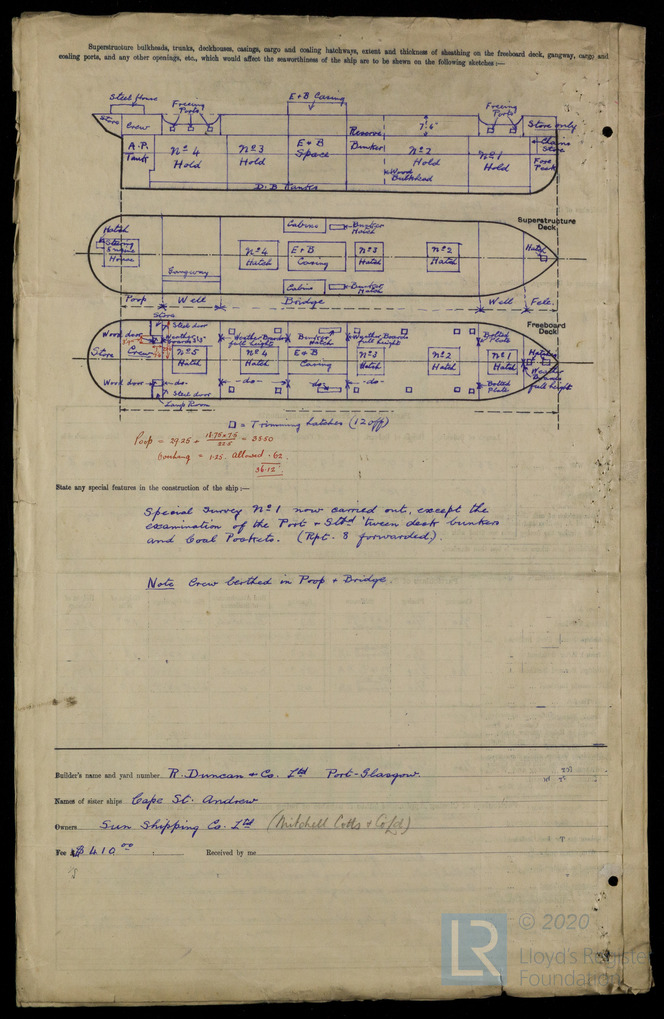 Superstructure bulkheads, trunks, deckhouses, casings, cargo and coaling hatchways, extent and thickness of sheathing on the freeboard deck, gangway, cargo and
coaling ports, and any other openings, etc., which would affect the seaworthiness of the ship are to be shewn on the following sketches:—
Steel House
Freeing Ports
E+B Casing
Freeing Ports
Store
Crew
Reserve
7'.6"
Store only
A.P. Tank
No 4 Hold
No 3 Hold
E+B Space
Bunker
No 2 Hold
No 1 Hold
Chain Store
Fore Peak
Wood Bulkhead
D.B Tanks
Superstructure Deck.
Hatch
Cabins
Bunker Hatch
Steering Engine House
No 4 Hatch
E+B Casing
No 3 Hatch
No 2 Hatch
Hatch
Gangway
Cabins
Bunker Hatch
Poop
Well
Bridge
Well
Fcle.
Store
Freeboard Deck
Wood door
Steel door
Weather Boards 3'3"
Weather Boards full height
Bunker Hatch
Weather Boards full height
Bolted Plate
Store
Crew
No 5 Hatch
No 4 Hatch
E+B Casing
No 3 Hatch
No 2 Hatch
No 1 Hatch
Hatches
Weather Boards full height
Wood door
-do-
-do-
-do-
-do-
Bolted Plate
Steel door
Lamp Room
= Trimming hatches (12 off)
Poop = 29.25 + 18.75 x 7.5 / 22.5 = 35.50
1.25 allowed .62
36.12
State any special features in the construction of the ship:—
Special Survey No 1 now carried out, except the
examination of the Port + Stbd 'tween deck bunkers
and Coal Pockets. (Rpt. 8 forwarded).
Note Crew berthed in Poop + Bridge.
Builder's name and yard number R. Duncan + Co. Ltd Port-Glasgow.
Names of sister ships Cape St. Andrew
Owners Sun Shipping Co. Ltd (Mitchell Cotts + Co Ld)
Fee $410.00 Received by me
© 2020
LR
Lloyd's Register
Foundation